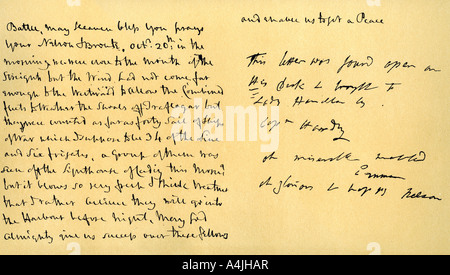 Battle, may Heaven bless you prays
your Nelson & Bronte, octr. 20th. in the
morning we were close to the mouth of the
streights but the Wind had not come far
enough to the Westward to allow the Combined
fleets to Weather the shoals off Trafalgar but
they were counted as far as forty Sail of Ships
of War which I suppose to be 34 of the Line
and six frigates, a group of them was
seen off the Lighthouse of Cadiz this Morng
but it blows so very fresh & thick Weather
that I rather believe they will go into
the Harbour before night, May God
Almighty give us success over these fellows
and enable us to get a Peace
This letter was found open on
His Desk & brought to
Lady Hamilton by
Captn Hardy
oh miserable wretched
Emma
oh glorious & happy Nelson
alamy
Image ID: A4JHAR
www.alamy.com